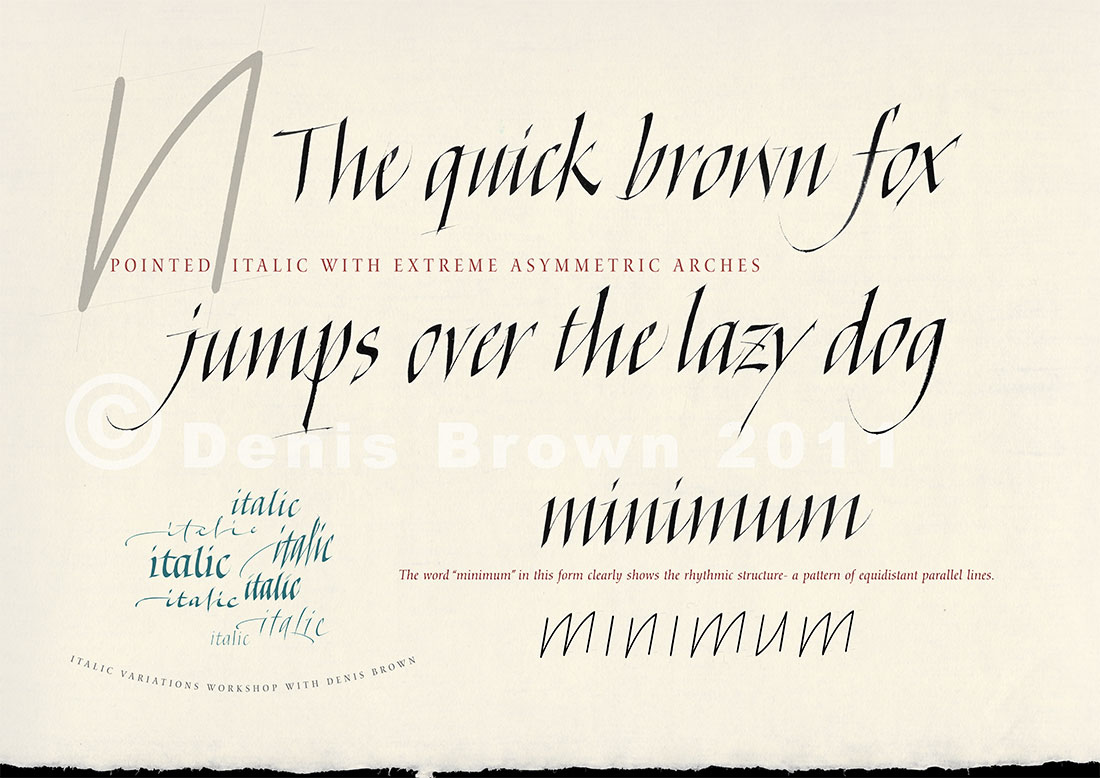 n
The quick brown fox
POINTED ITALIC WITH EXTREME ASYMMETRIC ARCHES
jumps over the lazy dog
© Denis Brown 2011
minimum
The word “minimum” in this form clearly shows the rhythmic structure- a pattern of equidistant parallel lines.
minimum
italic
italic
italic
italic
italic
italic
italic
italic
ITALIC VARIATIONS WORKSHOP WITH DENIS BROWN